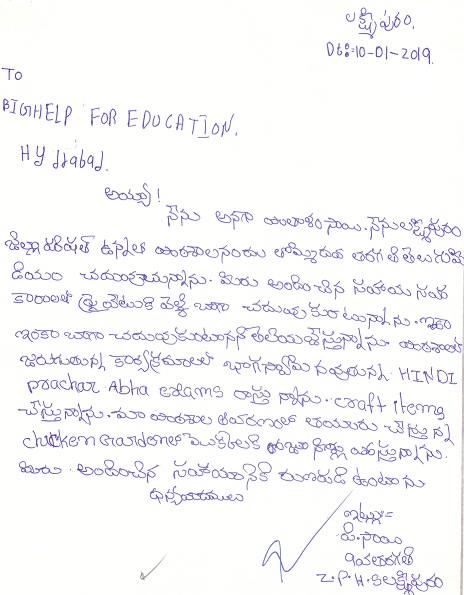 లక్ష్మీపురం.
Dt: 10-01-2019.
To
BIGHELP FOR EDUCATION.
HYdrabad.
అయ్యా!
నేను అనగా సాయి. నేను లక్ష్మీపురం
జిల్లా పరిషత్ ఉన్నత పాఠశాలనందు తొమ్మిదవ తరగతి తెలుగు మీ
డియం చదువుచున్నాను. మీరు అందించిన సహాయ సహ
కారాలతో ప్రైవేటుకి వెళ్లి బాగా చదువుకుంటున్నాను. ఇంకా
ఇంకా బాగా చదువుకుంటానని తెలియచేస్తున్నాను. పాఠశాలలో
జరుగుతున్న కార్యక్రమాలలో HINDI
prachar Abha exams రాస్తున్నాను. craft items
చేస్తున్నాను. మా పాఠశాల ఆవరణంలో తయారు చేస్తున్న
chicken Gardenలో మొక్కలకి నీళ్లు పోస్తున్నాను.
మీరు అందించిన సహాయానికి ఉంటాను
ధన్యవాదములు
ఇట్లు=
పి.సాయి
9వ తరగతి
Z.P.H.S లక్ష్మీపురం